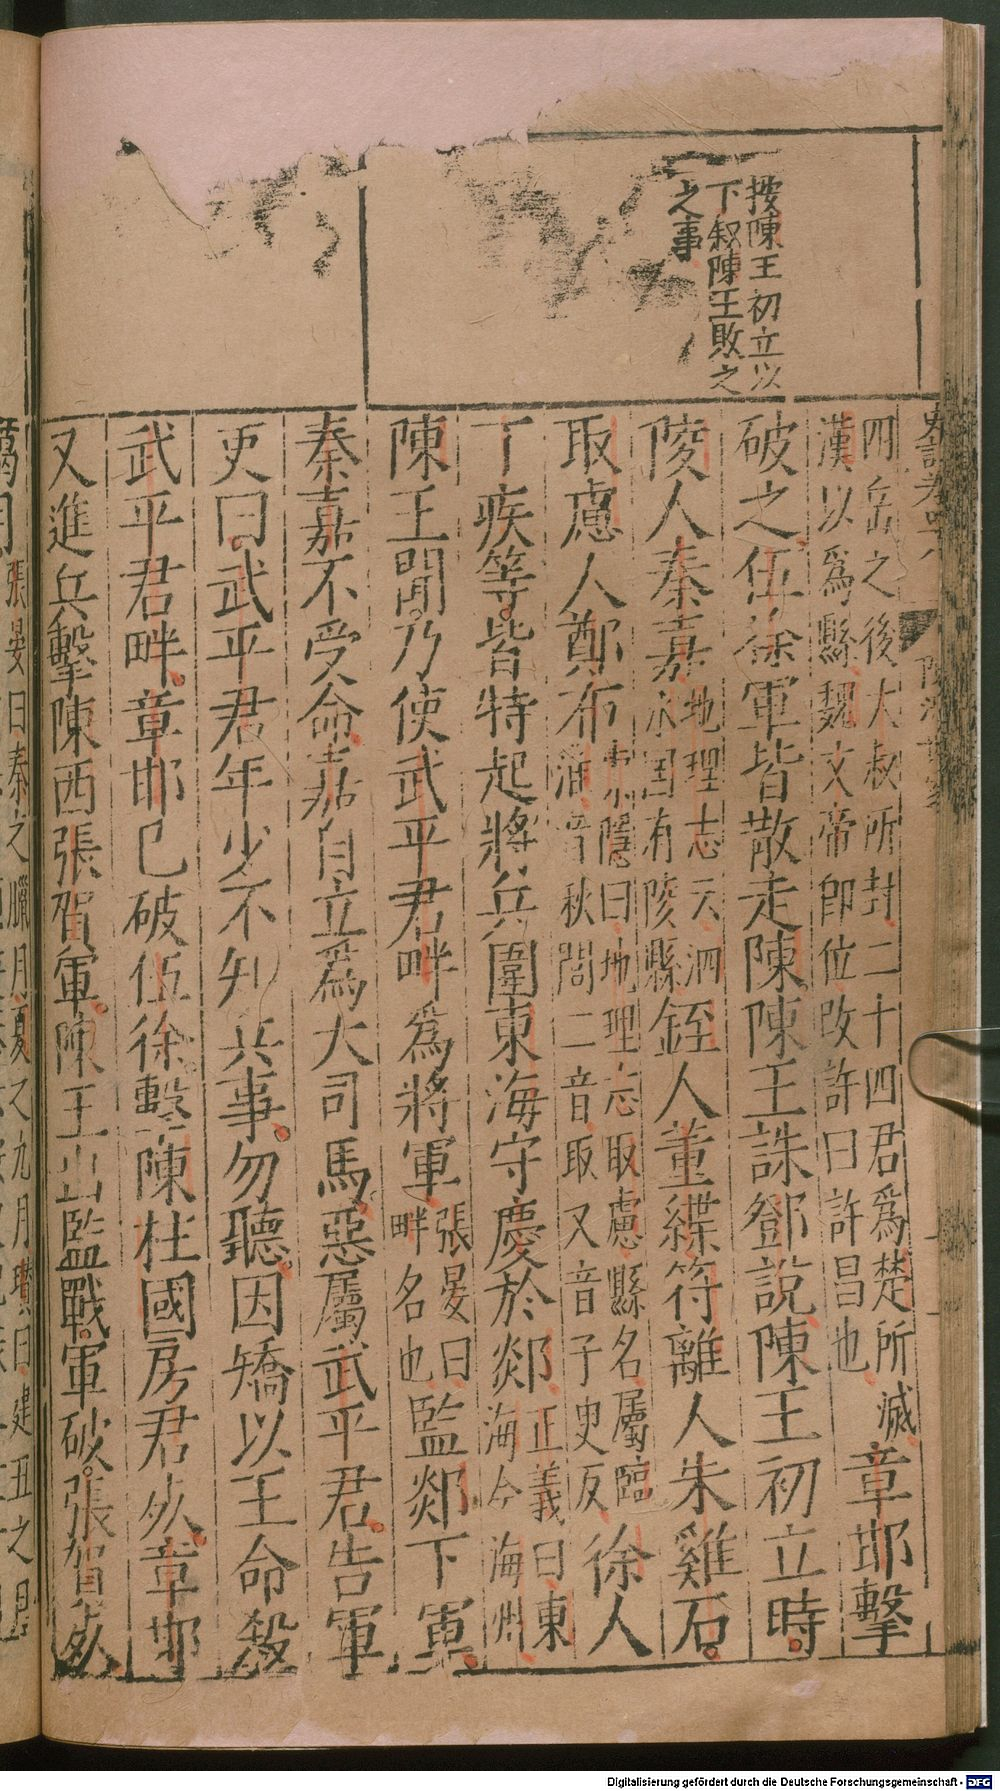 按陳王初立以
下叙陳王敗之
之事
四岳之後大叔所封二十四君為楚所滅
漢以為縣魏文帝即位改許曰許昌也
章邯擊
破之伍徐軍皆散走陳陳王誅鄧說陳王初立時
陵人秦嘉
地理志云泗
水国有陵縣
銍人董緤符離人朱雞石
取慮人鄭布
索隱曰地理志取慮縣名屬臨
淮音秋閭二音取又音子史反
徐人
丁疾等皆特起將兵圍東海守慶於郯
正義曰東
海今海州
陳王聞乃使武平君畔為將軍
張晏曰
畔名也
監郯下軍
秦嘉不受命嘉自立為大司馬惡屬武平君告軍
吏曰武平君年少不知兵事勿聽因矯以王命殺
武平君畔章邯已破伍徐擊陳柱國房君死章邯
又進兵擊陳西張賀軍陳王出監戰軍破張賀死
臘月
張晏曰秦之臘月夏之九月瓚曰建丑之月
Digitalisierung gefördert durch die Deutsche Forschungsgemeinschaft - DFG